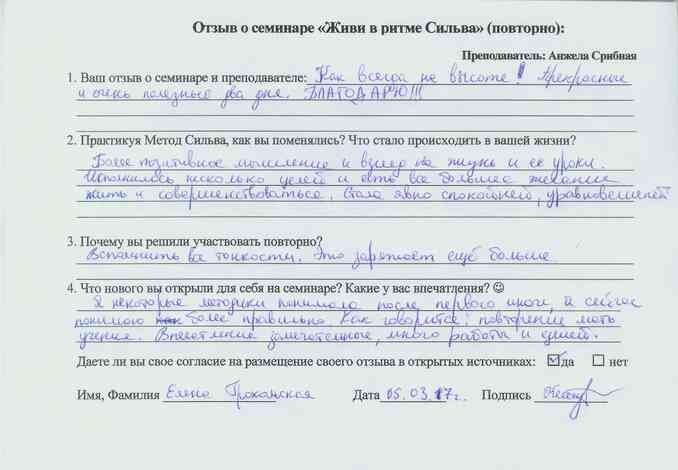 Отзыв о семинаре «Живи в ритме Сильва» (повторно):
Преподаватель: Анжела Срибная
1. Ваш отзыв о семинаре и преподавателе: Как всегда на высоте! Прекрасные
и очень полезные два дня. БЛАГОДАРЮ!!!
2. Практикуя Метод Сильва, как вы поменялись? Что стало происходить в вашей жизни?
Более позитивное мышление и взгляд на жизнь и ее уроки.
Исполнилось несколько целей и есть все большее желание
жить и совершенствоваться. Стала явно спокойней, уравновешенней
3. Почему вы решили участвовать повторно?
Вспомнить все тонкости. Это заряжает ещё больше
4. Что нового вы открыли для себя на семинаре? Какие у вас впечатления? ☺
Я некоторые методики понимала после первого иначе, а сейчас
понимаю более правильно. Как говорится: повторение мать
учения. Впечатления замечательные, много работы и идей.
Даете ли вы свое согласие на размещение своего отзыва в открытых источниках: ☑ да ☐ нет
Имя, Фамилия Елена Дата 05.03.17г. Подпись